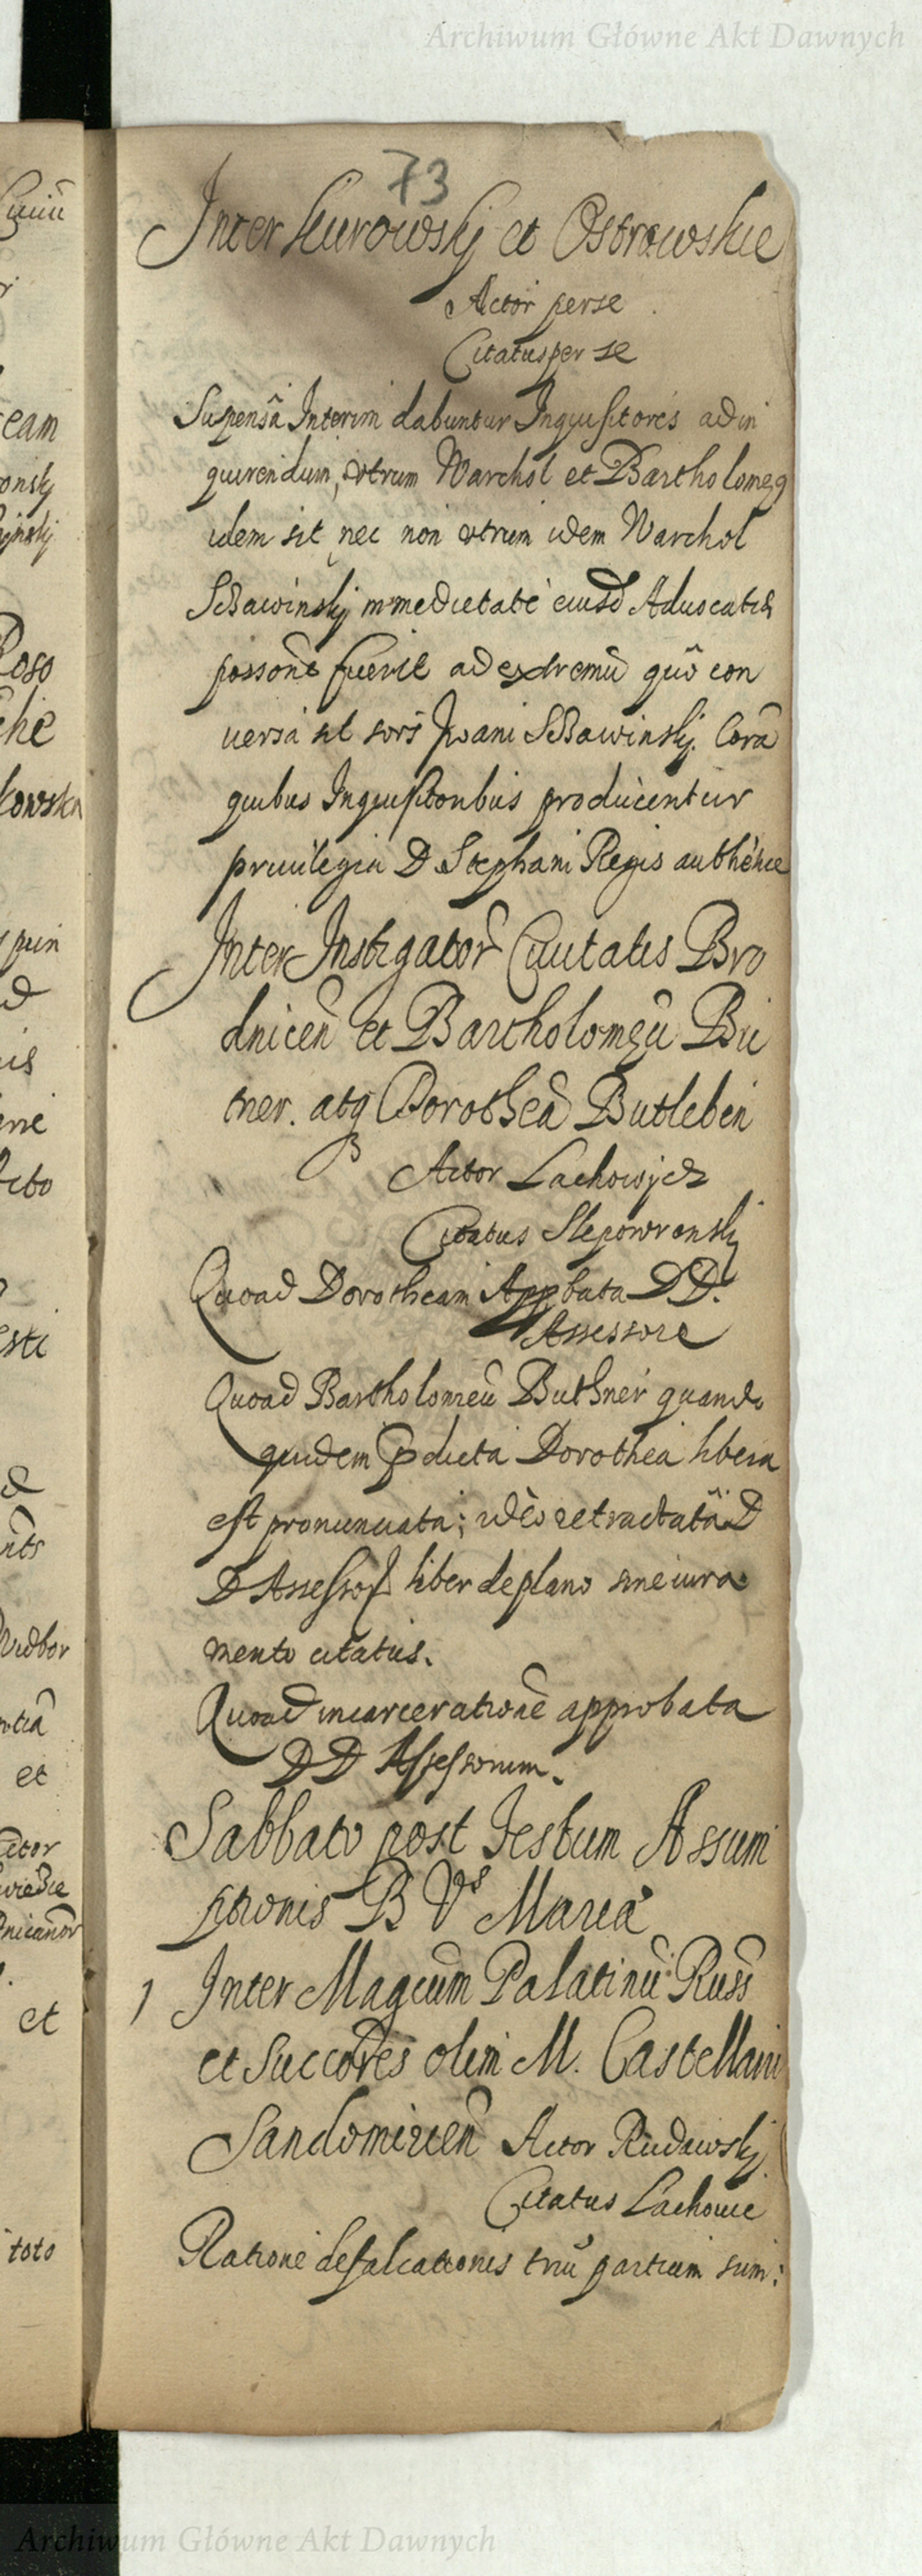 Archiwum Główne Akt Dawnych
73
Inter Kurowskj et Ostrowskie
Actor per se
Citatus per se
Suspensâ Interim dabuntur Inquisitores ad in
quirendum, vtrum Warchol et Bartholomeg
idem sit nec non vtrum idem Warchol
in medietatē eiusd
possone fuerit ad extremū quō con
uersa sit sors Iwani Corā
quibus Inquisitoribus producentur
priuilegia D Stephani Regis
Inter Instigatorē Ciuitatis Bro
dnicen̄ et Bartholomęū Bü
tner. atq Dorotheā Butlebin
Actor Lachowicz
Citatus Slepowronskj
Quoad Dorotheam Appbata DD.
Assessore
Quoad Bartholomeū Buthner quando
quidem pdicta Dorothea libera
est pronunciata; ideo retractatā D
D Assessor liber de plano sine iura
mento citatus.
Quoad incarcerationē approbata
DD Assessorum.
Sabbato post Festum Assum
ptionis B Vs Mariæ
1 Inter Magcum Palatinū Russ
et Succores olim M. Castellani
Sandomirien̄ Actor Rudawskj
Citatus Lachowic
Ratione defalcationis triū partium sum:
Archiwum Główne Akt Dawnych